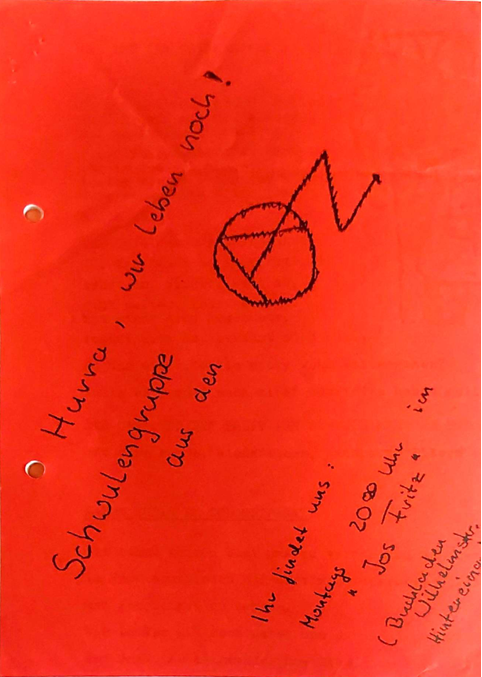 Hurra, wir leben noch!
Schwulengruppe
aus den
AZ
Ihr findet uns:
Montags 20⁰⁰ Uhr im
"Jos Fritz"
(Buchladen
Wilhelmstr.